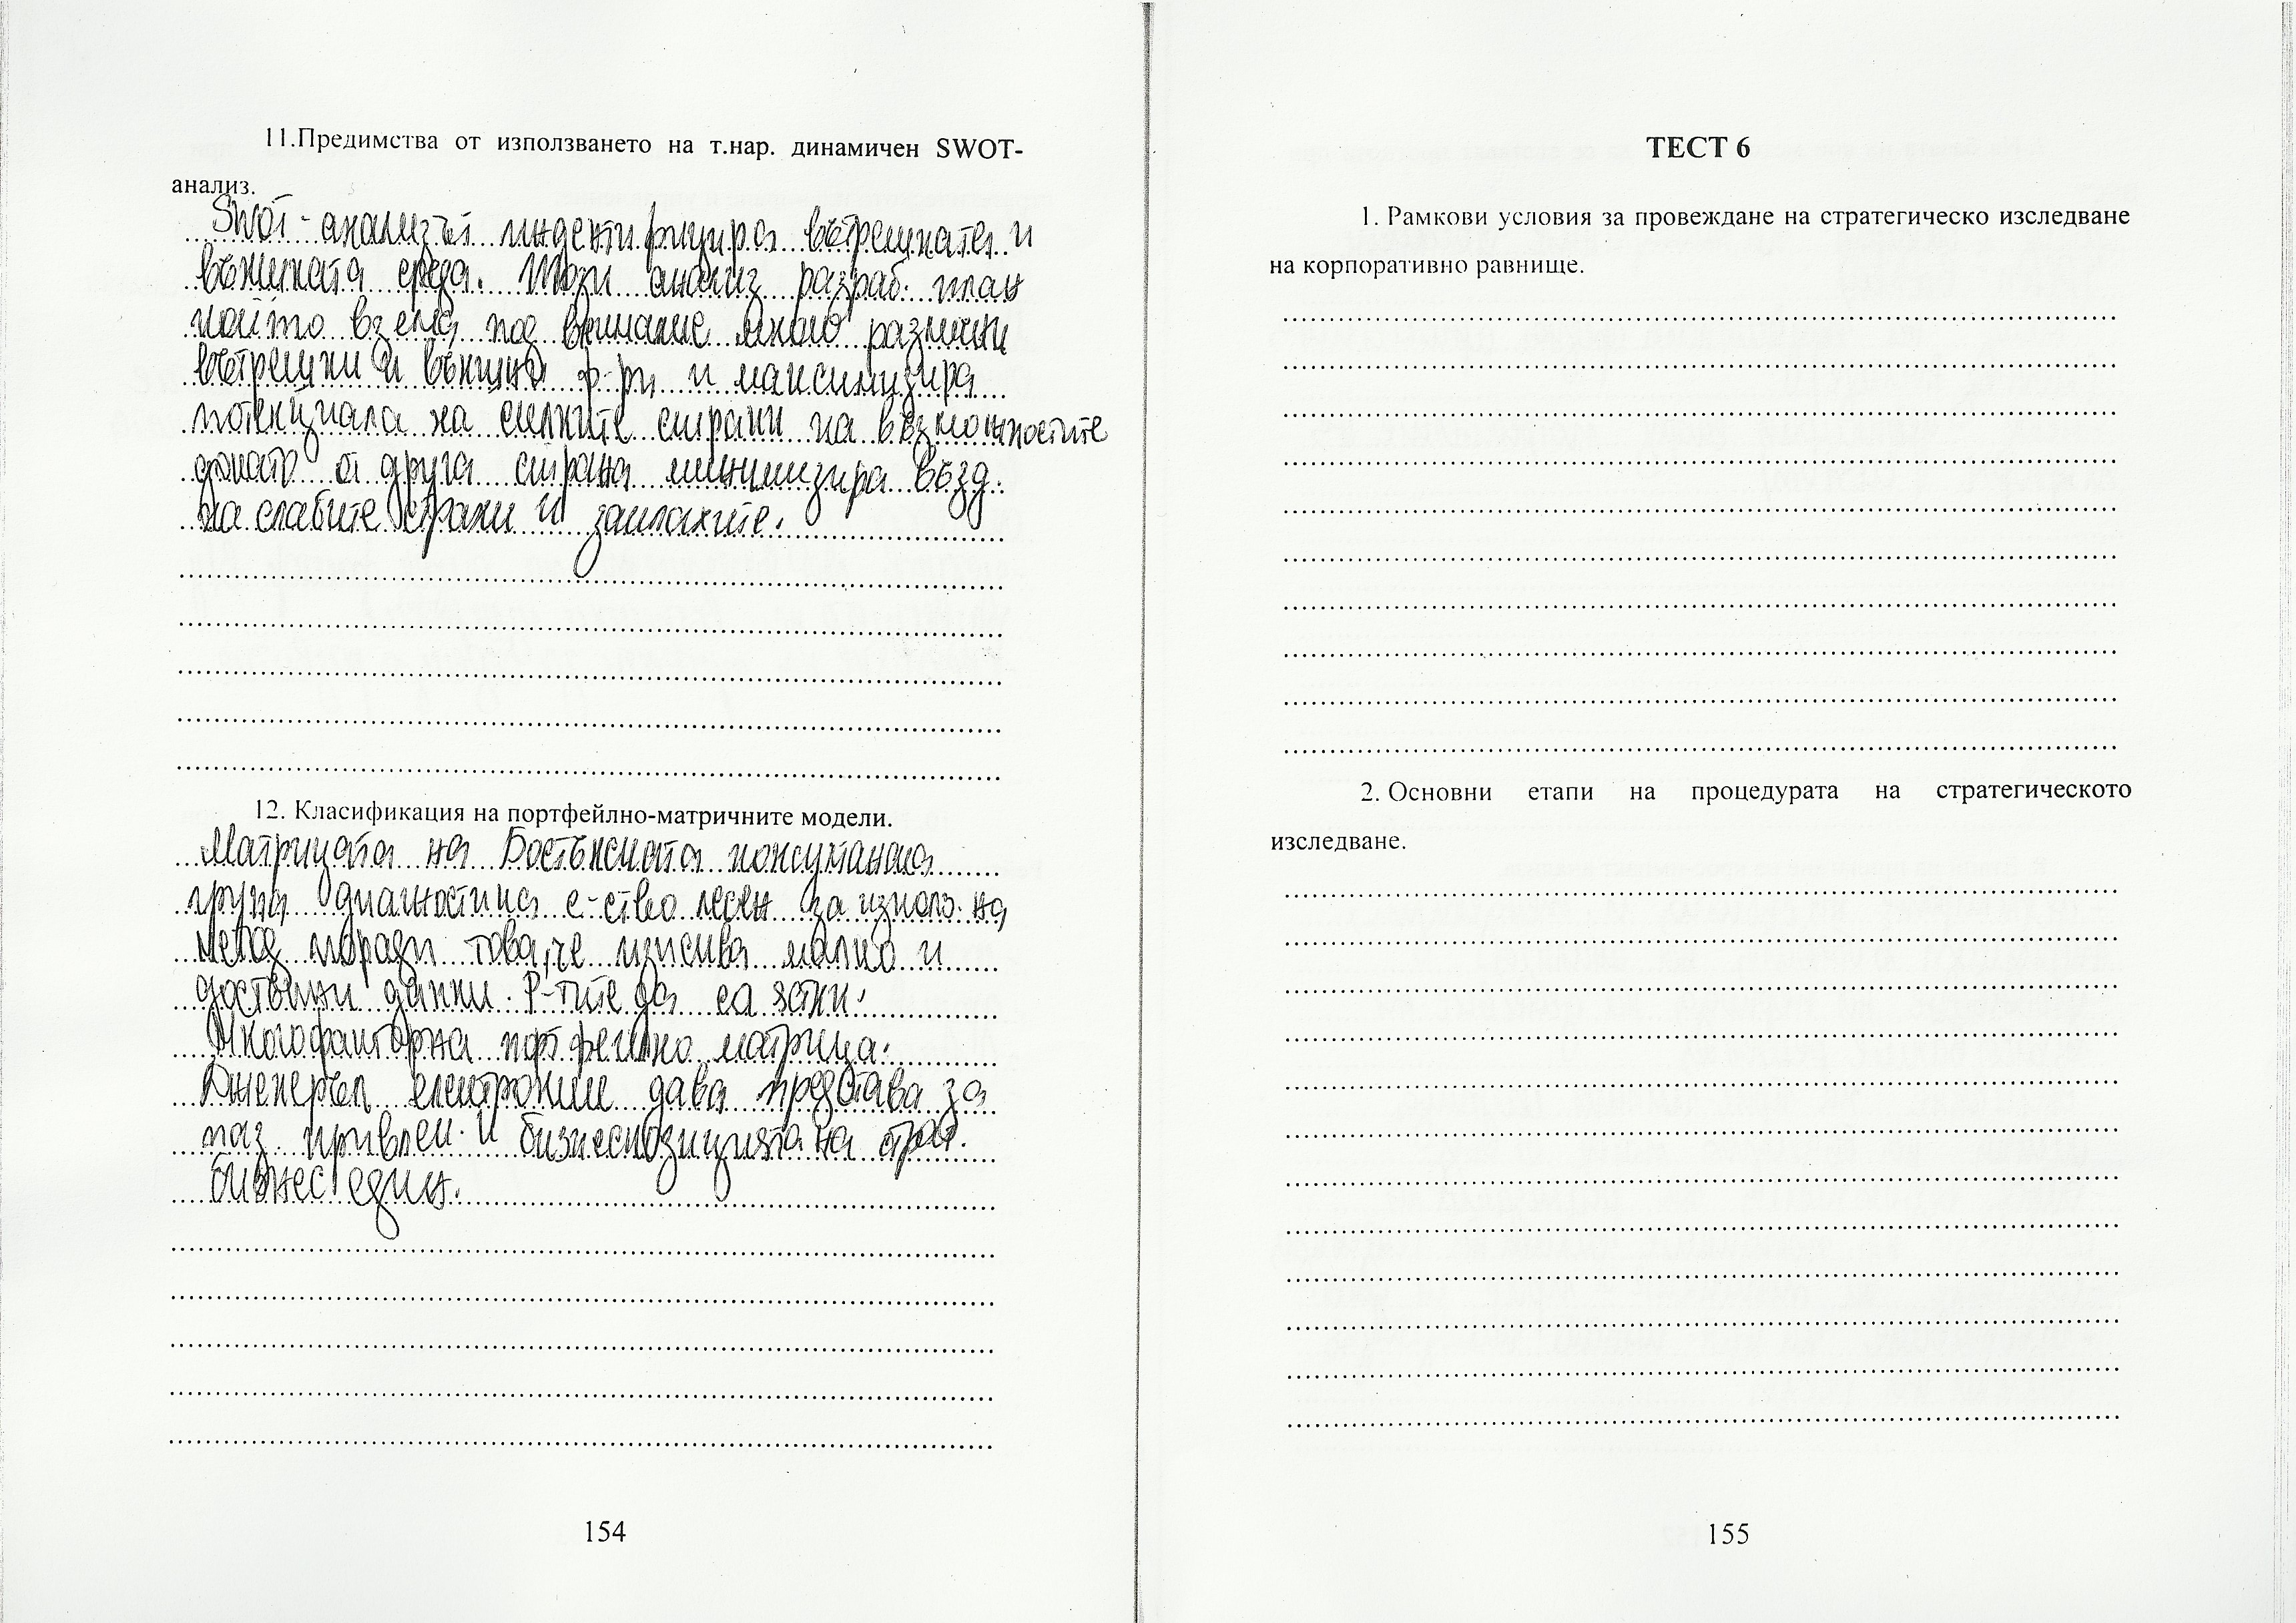 11.Предимства от използването на т.нар. динамичен SWOT-
анализ.
Swot-анализът индентифицира вътрешната и
външната среда. Този анализ разраб. план
който взема под внимание много различни
вътрешни и външни ф-ри и максимизира
потенциала на силните страни на възможностите
докато от друга страна минимизира възд.
на слабите страни и заплахите.
12. Класификация на портфейлно-матричните модели.
Матрицата на Бостънската консултанска
група диагностика с-ство лесен за използ. на
метод поради това, че изисква малко и
достъпни данни. Р-тите да са
Многофакторна портфейлно матрица.
Дженеръл електроник дава представа за
паз. привлек. и бизнеспозицията на страт.
бизнес един.
154
ТЕСТ 6
1. Рамкови условия за провеждане на стратегическо изследване
на корпоративно равнище.
2. Основни етапи на процедурата на стратегическото
изследване.
155